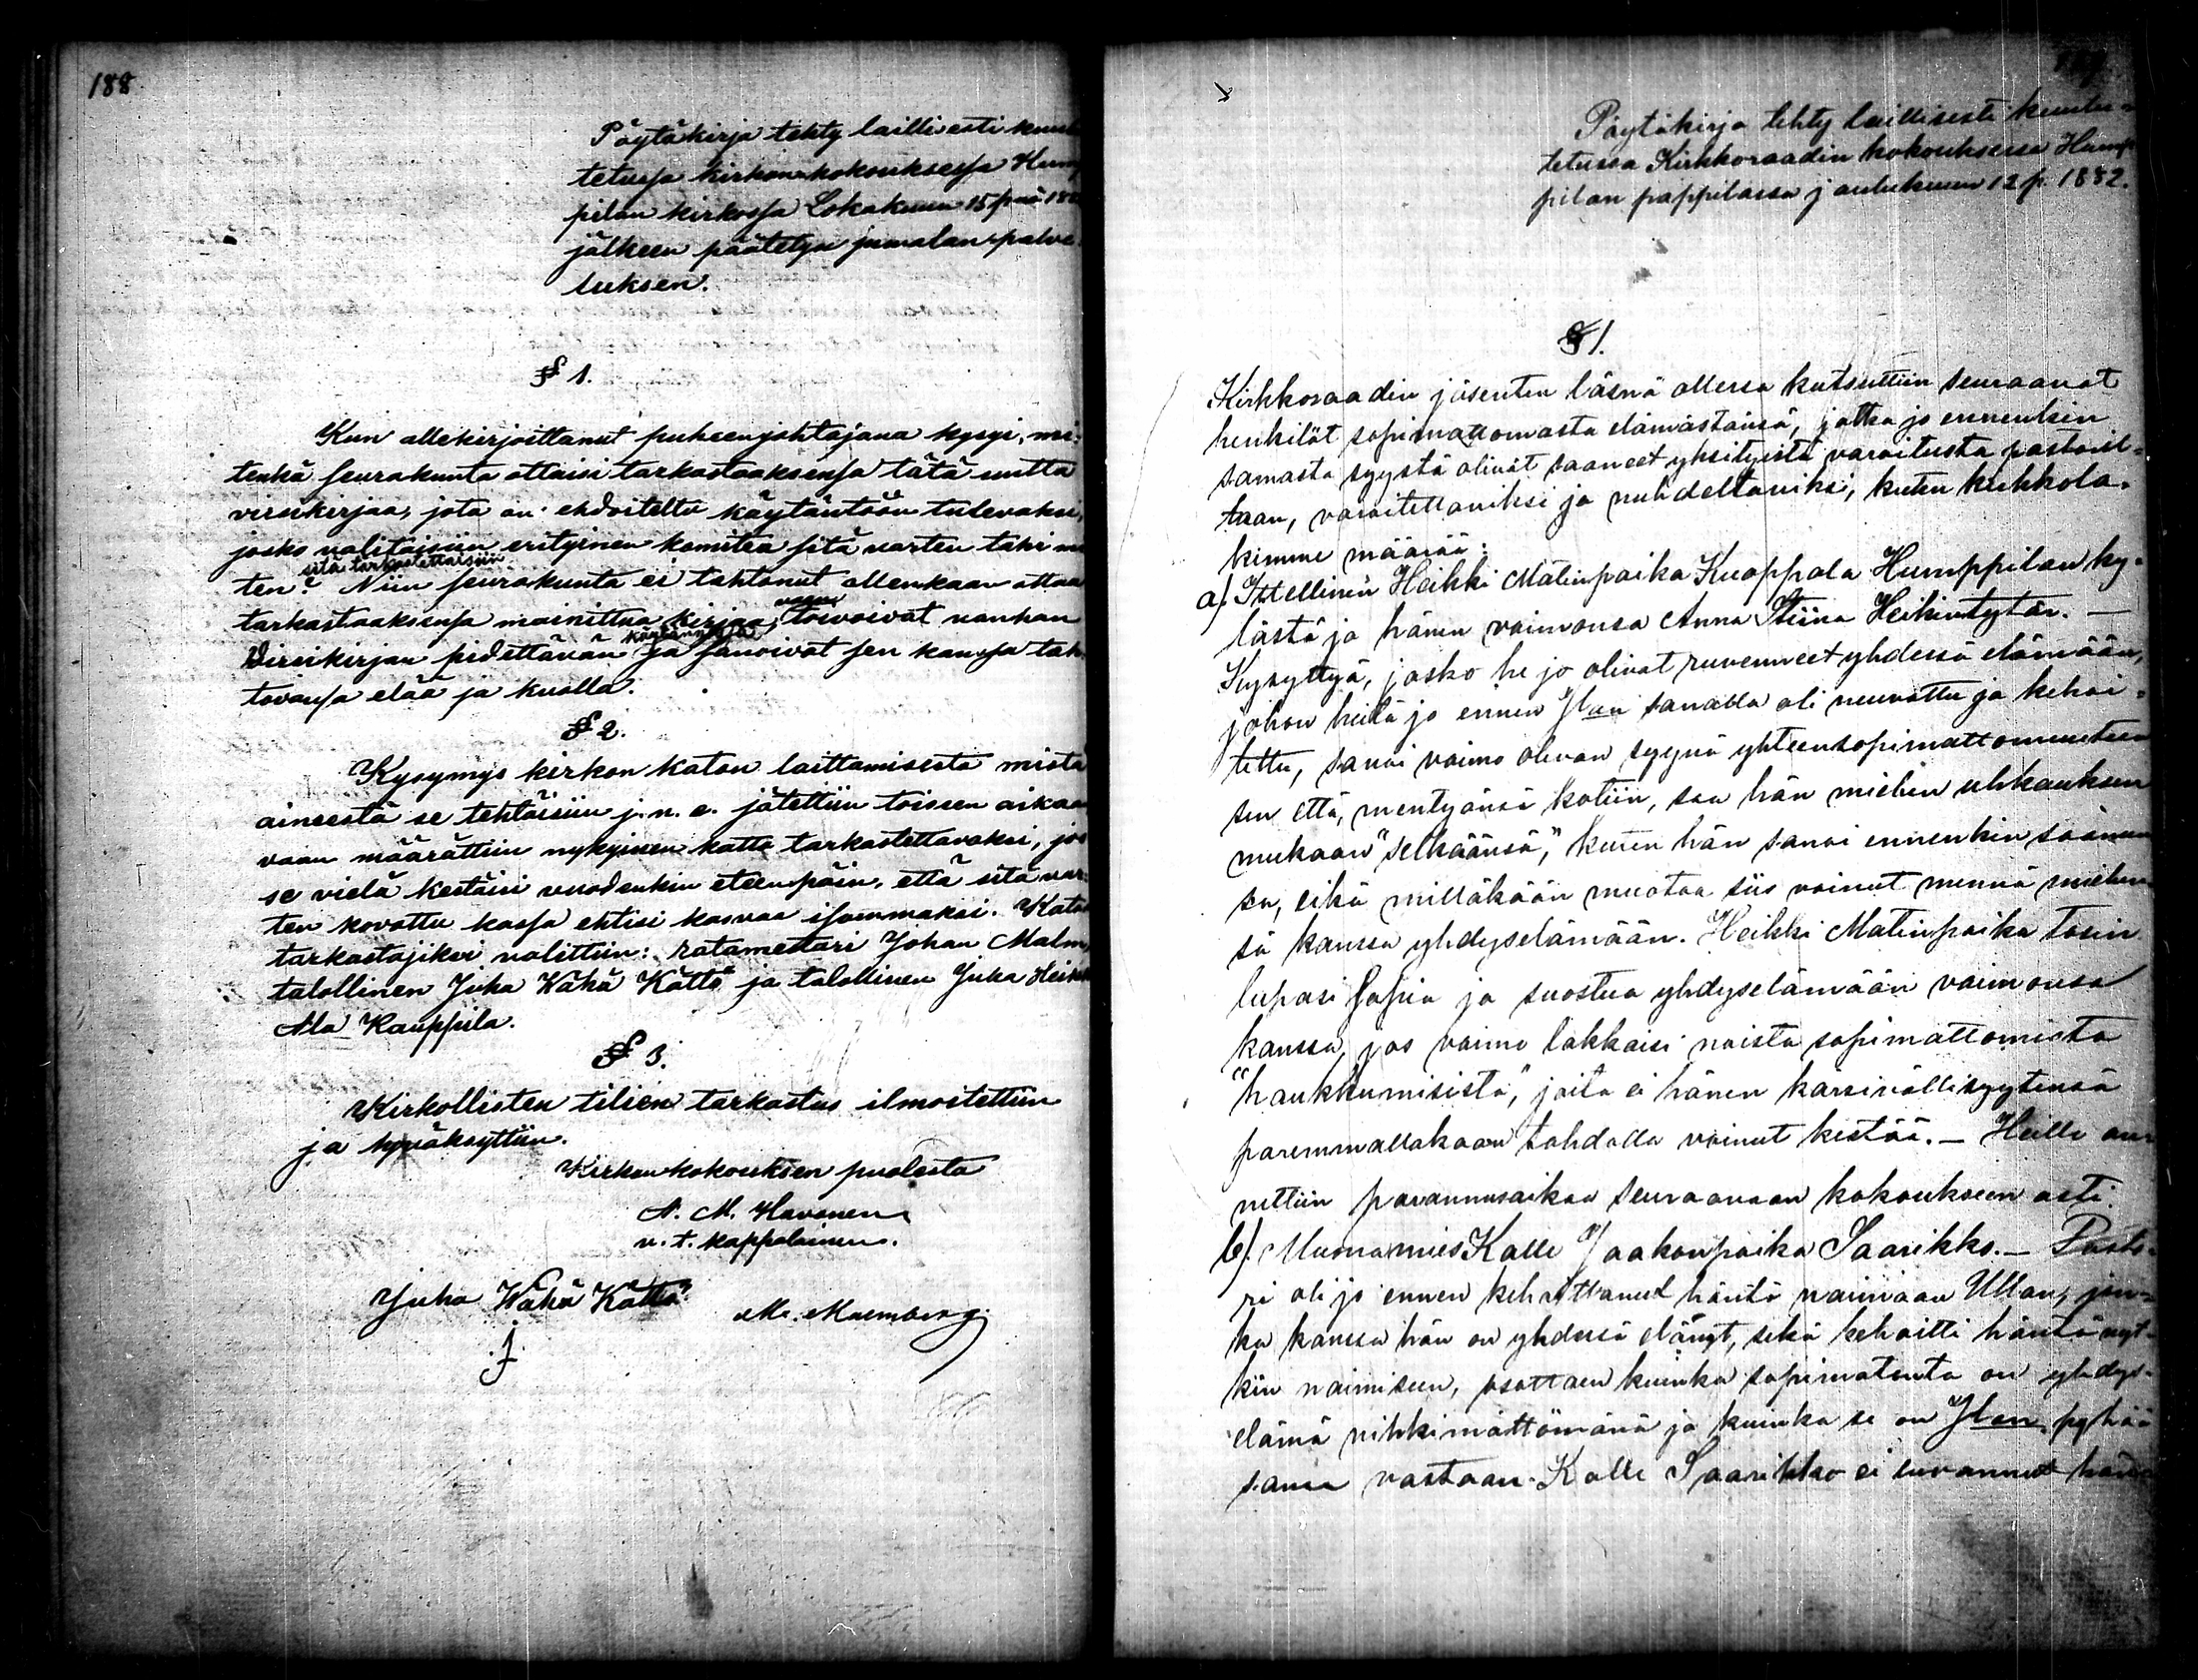 188
Pöytäkirja tehty laillisesti kuulu
tetussa kirkonkokouksessa Hump
pilan kirkossa Lokakuun 15 pnä 188
jälkeen päätetyn jumalanpalve
luksen.
§ 1.
Kun allekirjoittanut puheenjohtajana kysyi, mi-
tenkä seurakunta ottaisi tarkastaaksensa tätä uutta
virsikirjaa, jota on ehdoiteltu käytäntöön tulevaksi,
josko valitaisiin erityinen komitea sitä varten tahi m
sitä tarkastettaisiin
ten? Niin seurakunta ei tahtonut ollenkaan ottaa
tarkastaaksensa mainittua kirjaa, vaan toivoivat vanhan
käytännössä
Virsikirjan pidettävän ja sanoivat sen kanssa tah-
tovansa elää ja kuolla.
§ 2.
Kysymys kirkon katon laittamisesta mistä
aineesta se tehtäisiin j.n.e. jätettiin toiseen aikaan
vaan määrättiin nykyinen katto tarkastettavaksi, jos
se vielä kestäisi vuodenkin eteenpäin, että sitä var-
ten kovottu kassa ehtisi kasvaa isommaksi. Katon
tarkastajiksi valittiin: ratamestari Johan Malm,
talollinen Juha Wähä Kättö ja talollinen Juha Heik
Ala Kauppila.
§ 3.
Kirkollisten tilien tarkastus ilmoitettiin
ja hyväksyttiin.
Kirkonkokouksen puolesta
A. M. Havonen
v. t. kappalainen.
Juho Wähä Kättö M. Malmberg.
Pöytäkirja tehty laillisesti kuulu-
tetussa Kirkkoraadin kokouksessa Hump
pilan pappilassa joulukuun 12 p. 1882.
§ 1.
Kirkkoraadin jäsenten läsnä ollessa kutsuttiin seuraavat
henkilöt sopimattomasta elämästänsä, jotka jo ennenkin
samasta syystä olivat saaneet yksityistä varoitusta pastoril-
taan, varoitettaviksi ja nuhdeltaviksi, kuten kirkkola-
kimme määrää:
a). Itsellinen Heikki Matinpoika Kuoppala Humppilan ky-
lästä ja hänen vaimonsa Anna Stiina Heikintytär. —
Kysyttyä, josko he jo olivat ruvenneet yhdessä elämään,
johon heitä jo ennen Jlan sanalla oli neuvottu ja kehoi-
tettu, sanoi vaimo olevan syynä yhteensopimattomuuteen
sen että, mentyänsä kotiin, saa hän miehen uhkauksen
mukaan "selkäänsä," kuten hän sanoi ennenkin saanee
sa, eikä milläkään muotoa siis voinut mennä miehen
sä kanssa yhdyselämään. Heikki Matinpoika tosin
lupasi sopia ja suostua yhdyselämään vaimonsa
kanssa, jos vaimo lakkaisi noista sopimattomista
"haukkumisista," joita ei hänen kärsivällisyytensä
paremmallakaan tahdolla voinut kestää. — Heille an-
nettiin parannusaikaa seuraavaan kokoukseen asti.
b). Muonamies Kalle Jaakonpoika Saarikko. — Pasto-
ri oli jo ennen kehoittanut häntä naimaan Ullan, jon-
ka kanssa hän on yhdessä elänyt, sekä kehoitti häntä nyt-
kin naimiseen, osottaen kuinka sopimatonta on yhdys-
elämä vihkimättömänä ja kuinka se on Jlan pyhää
sanaa vastaan. Kalle Saarikko ei luvannut